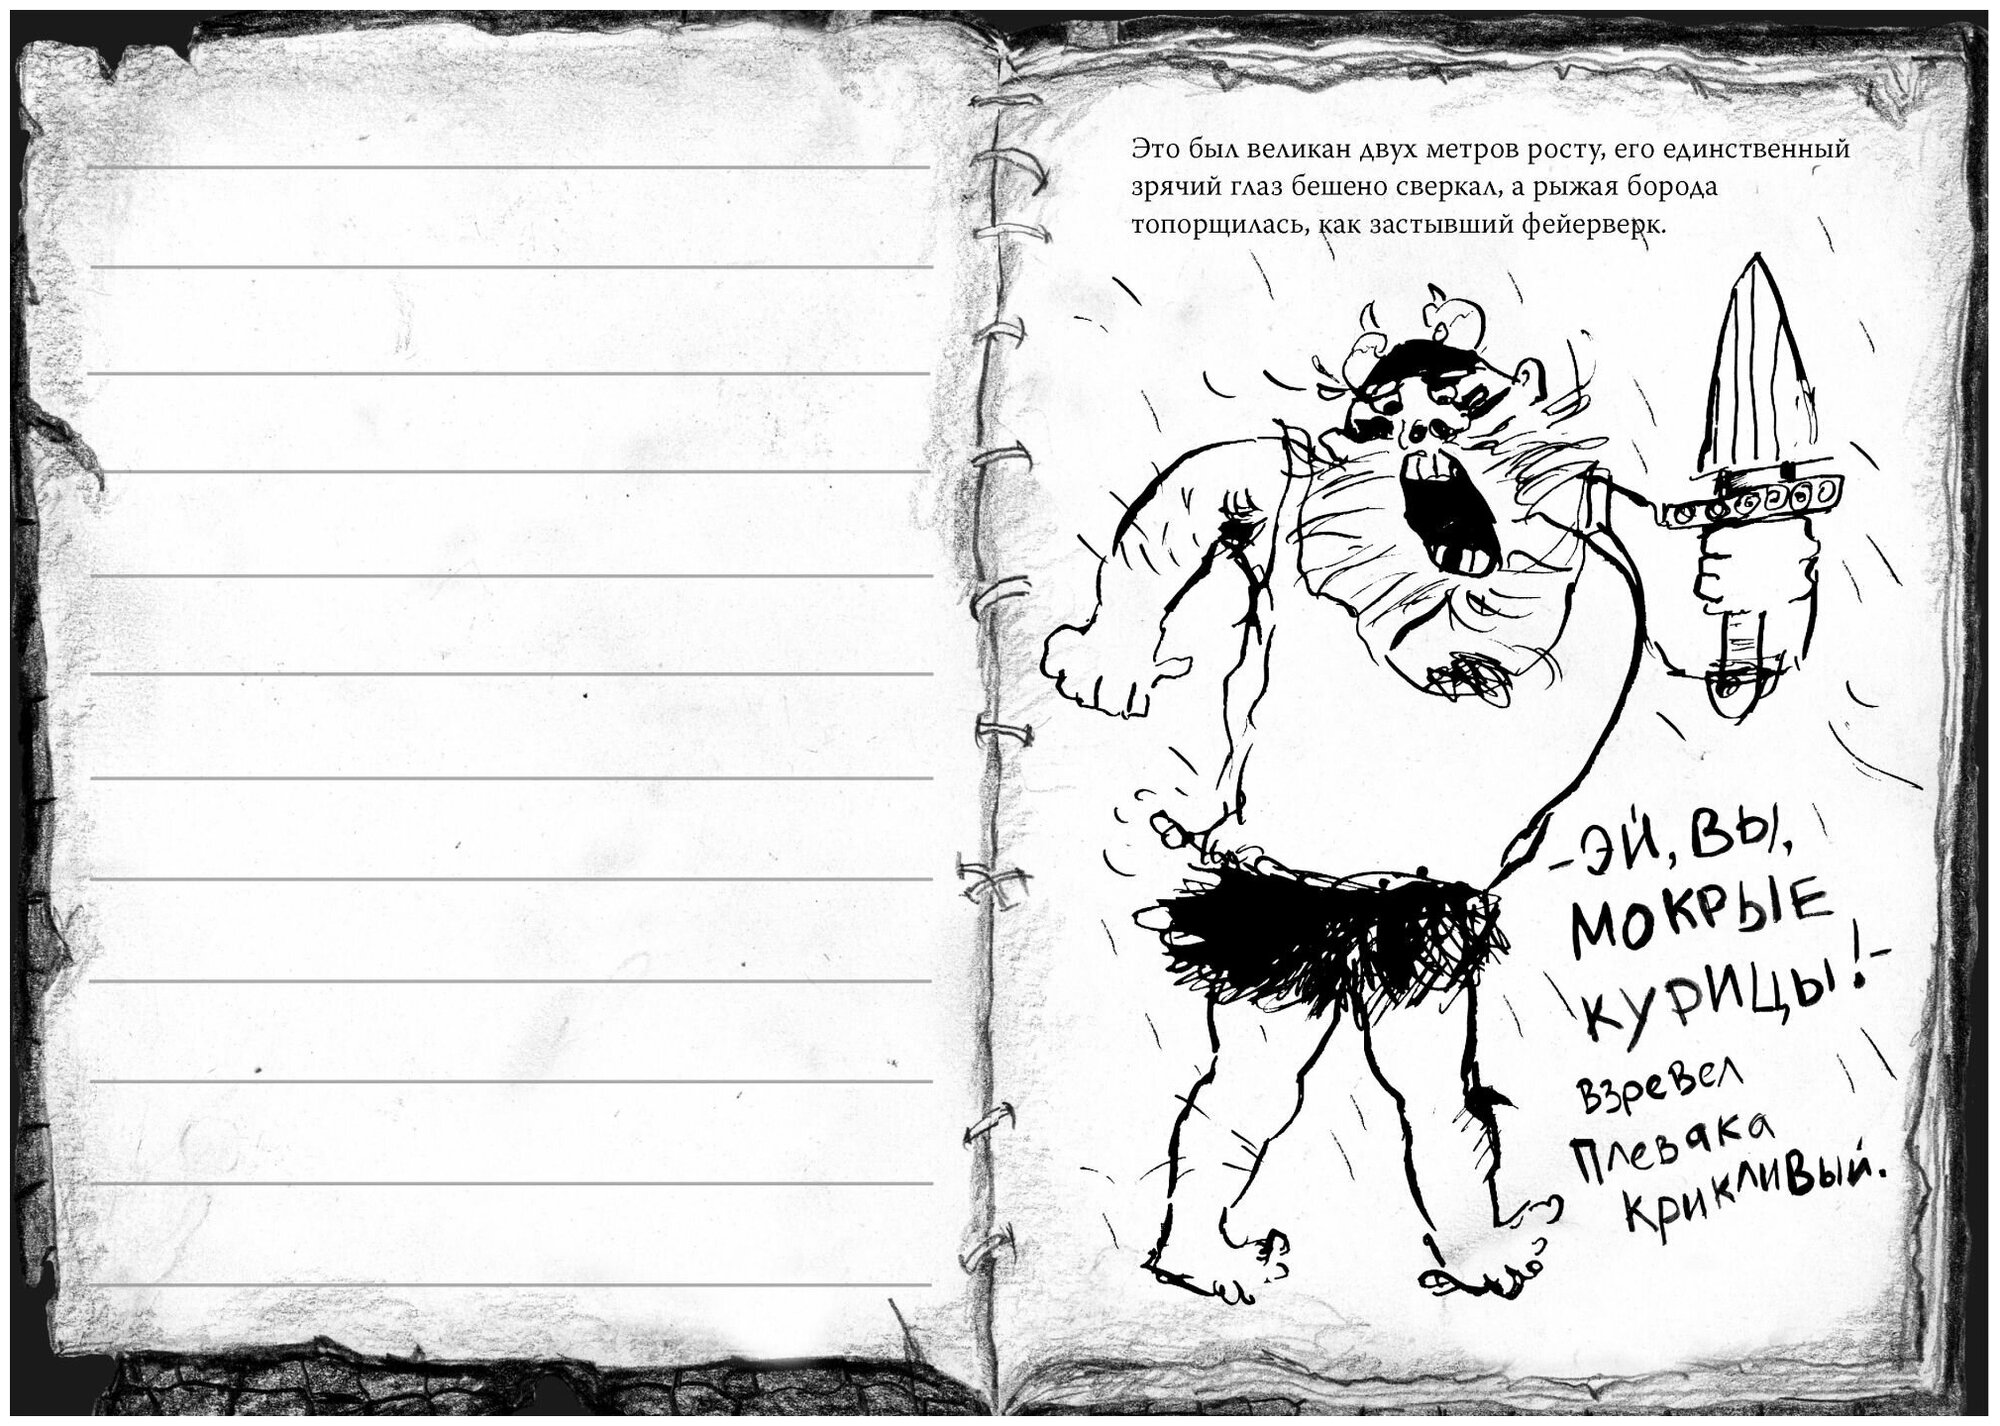 Это был великан двух метров росту, его единственный
зрячий глаз бешено сверкал, а рыжая борода
топорщилась, как застывший фейерверк.
-ЭЙ, ВЫ,
МОКРЫЕ
КУРИЦЫ!-
взревел
Плевака
Крикливый.